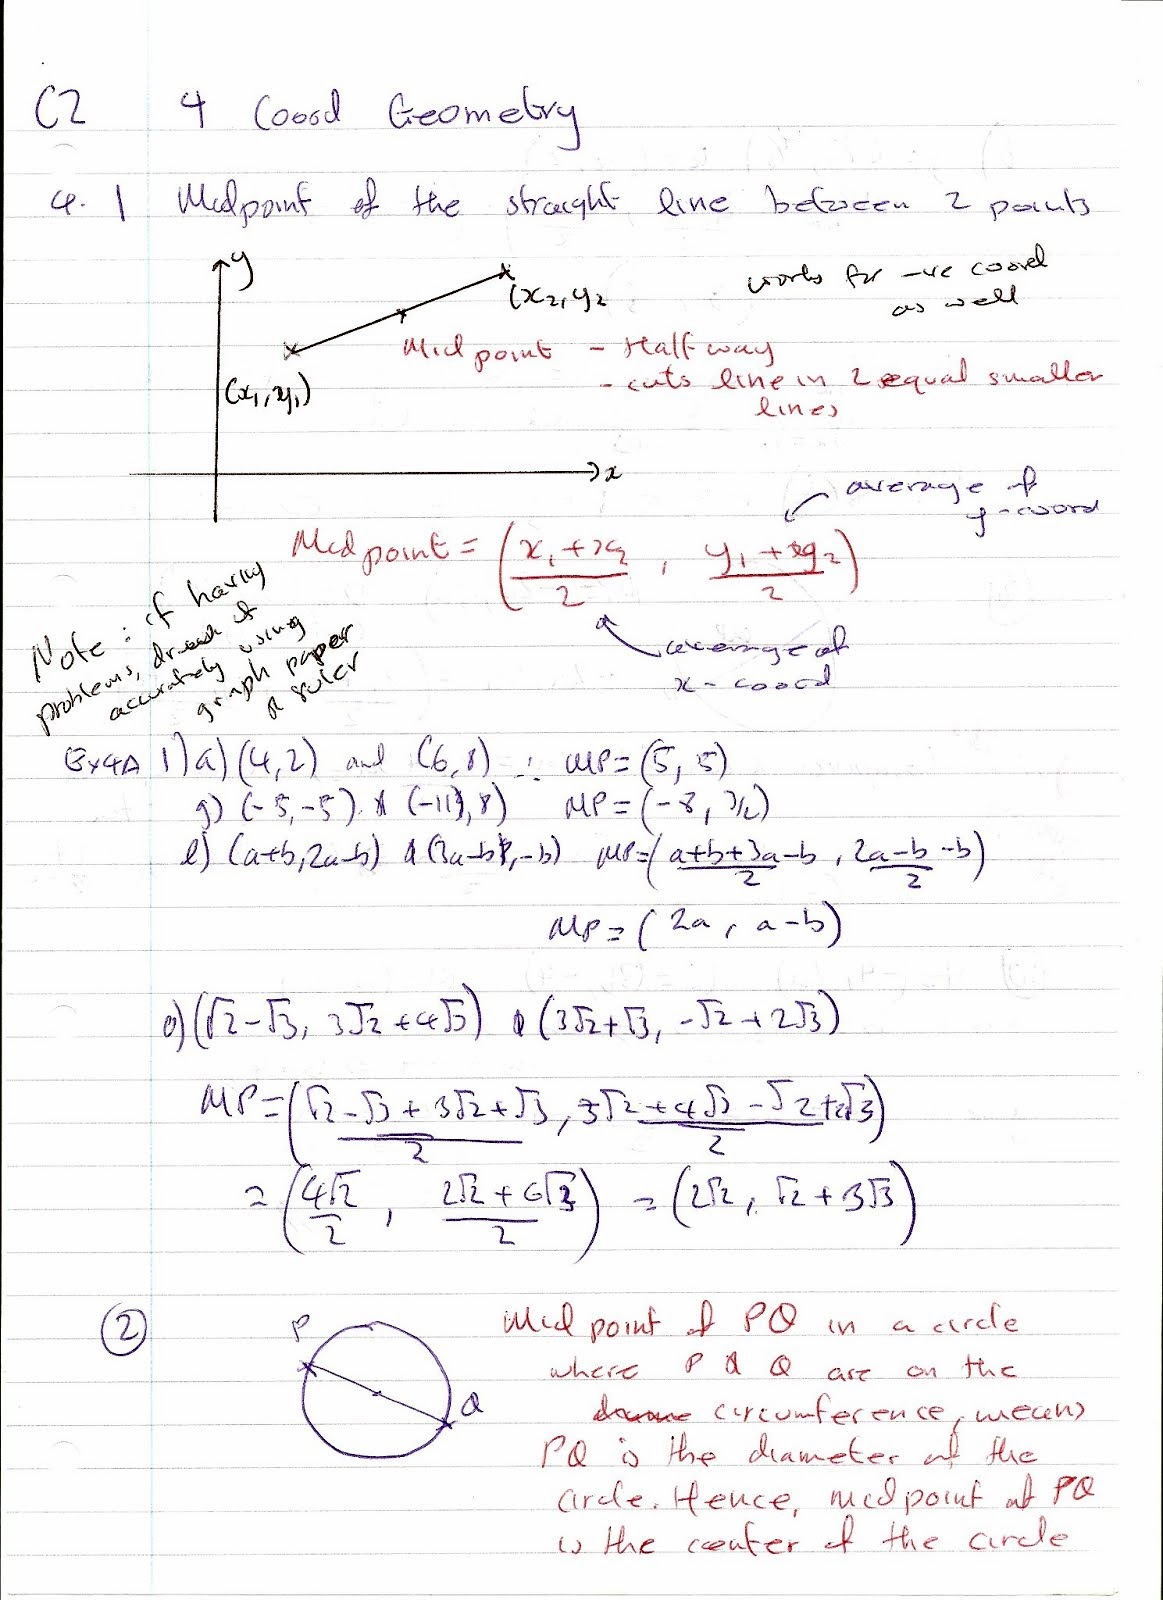 C2 4 Coord Geometry
4.1 Midpoint of the straight line between 2 points
y
(x₂, y₂
works for -ve coord
as well
Midpoint - Halfway
- cuts line in 2 equal smaller
lines
(x₁, y₁)
x
average of
y-coord
Midpoint = ((x₁+x₂)/2, (y₁+y₂)/2)
average of
x-coord
Note: if having
problems, draw it
accurately using
graph paper
& ruler
Ex4A 1) a) (4,2) and (6,8) ∴ MP=(5,5)
g) (-5,-5) & (-11,8) MP=(-8, 3/2)
l) (a+b,2a-b) & (3a-b,-b) MP=((a+b+3a-b)/2, (2a-b-b)/2)
MP=(2a, a-b)
o) (√2-√3, 3√2+4√3) & (3√2+√3, -√2+2√3)
MP=((√2-√3+3√2+√3)/2, (3√2+4√3-√2+2√3)/2)
=(4√2/2, (2√2+6√3)/2) =(2√2, √2+3√3)
2
P
Q
Midpoint of PQ in a circle
where P & Q are on the
circumference, means
PQ is the diameter of the
circle. Hence, midpoint of PQ
is the center of the circle